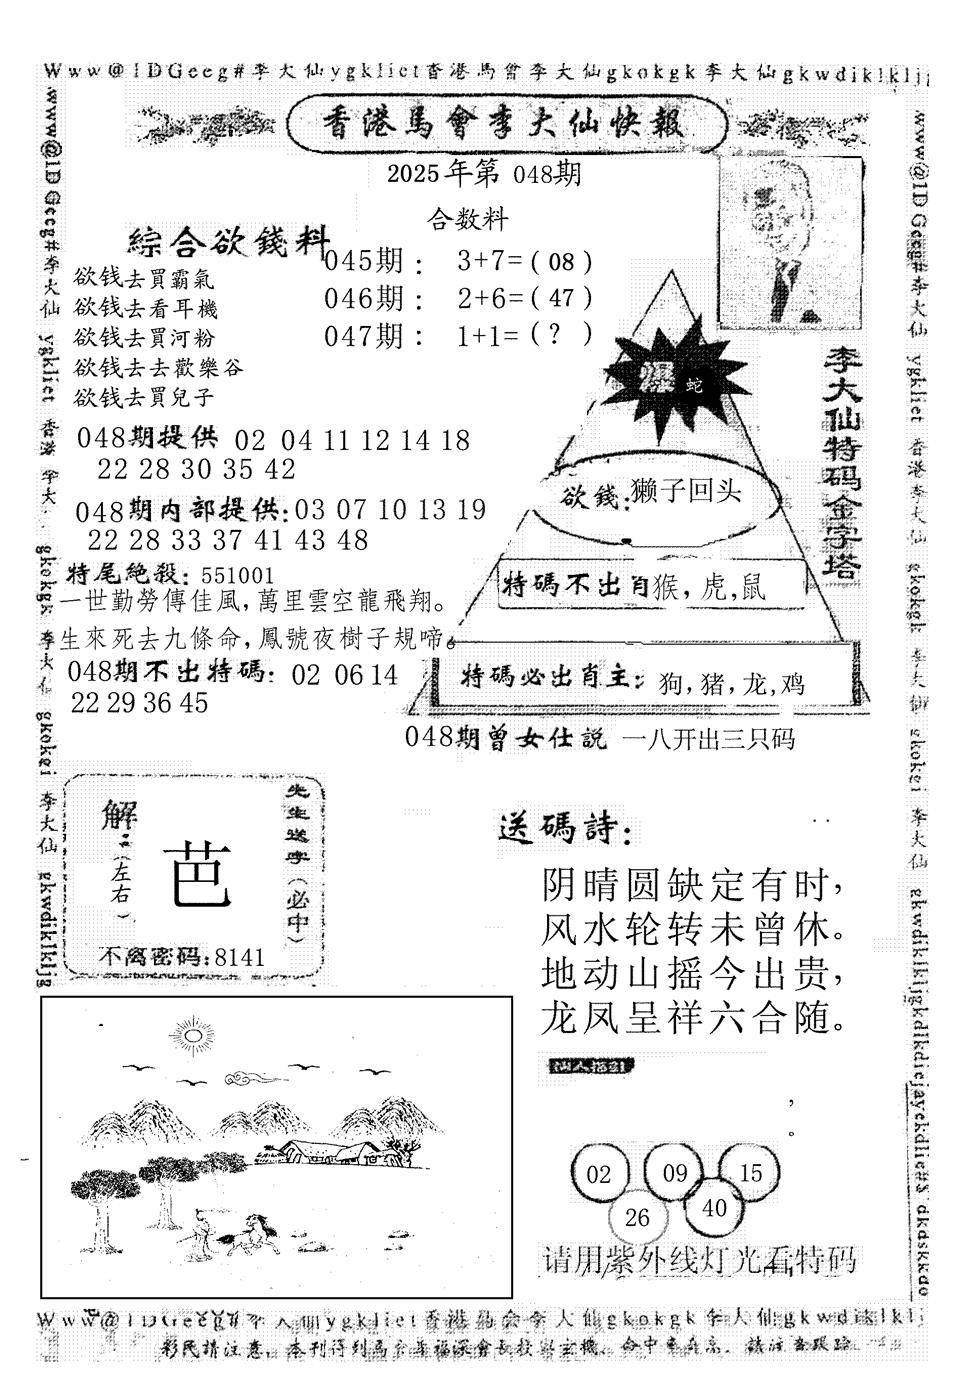 Www@1DGeeg#李大仙ygkliet香港馬會李大仙gkokgk李大仙gkwdiklkljg
香港馬會李大仙快報
2025年第 048期
合数料
綜合欲錢料
欲钱去買霸氣
欲钱去看耳機
欲钱去買河粉
欲钱去去歡樂谷
欲钱去買兒子
045期： 3+7=( 08 )
046期： 2+6=( 47 )
047期： 1+1=( ? )
爆 蛇
李大仙特码金字塔
048期提供 02 04 11 12 14 18
22 28 30 35 42
欲錢:獺子回头
048期内部提供:03 07 10 13 19
22 28 33 37 41 43 48
特尾絶殺: 551001
特碼不出肖猴, 虎,鼠
一世勤勞傳佳風,萬里雲空龍飛翔。
生來死去九條命,鳳號夜樹子規啼。
048期不出特碼: 02 06 14
22 29 36 45
特碼必出肖主: 狗,猪,龙,鸡
048期曾女仕説 一八开出三只码
先生送字(必中)
解:
(左右)
芭
不离密码:8141
送碼詩:
阴晴圆缺定有时,
风水轮转未曾休。
地动山摇今出贵,
龙凤呈祥六合随。
02 09 15
26 40
请用紫外线灯光看特码
Www@1DGeeg#李大仙ygkliet香港馬会李大仙gkokgk李大仙gkwdiklklj